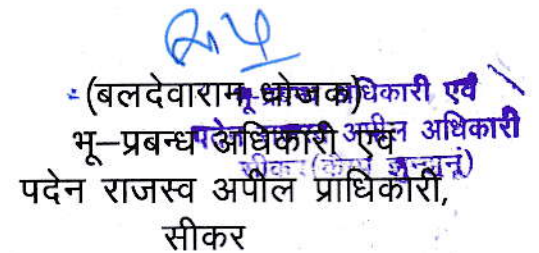 (बलदेवाराम धोजक)
भू–प्रबन्ध अधिकारी एवं
पदेन राजस्व अपील प्राधिकारी,
सीकर
भू-प्रबन्ध अधिकारी एवं
पदेन राजस्व अपील अधिकारी
सीकर (कैम्प झुन्झुनूं)